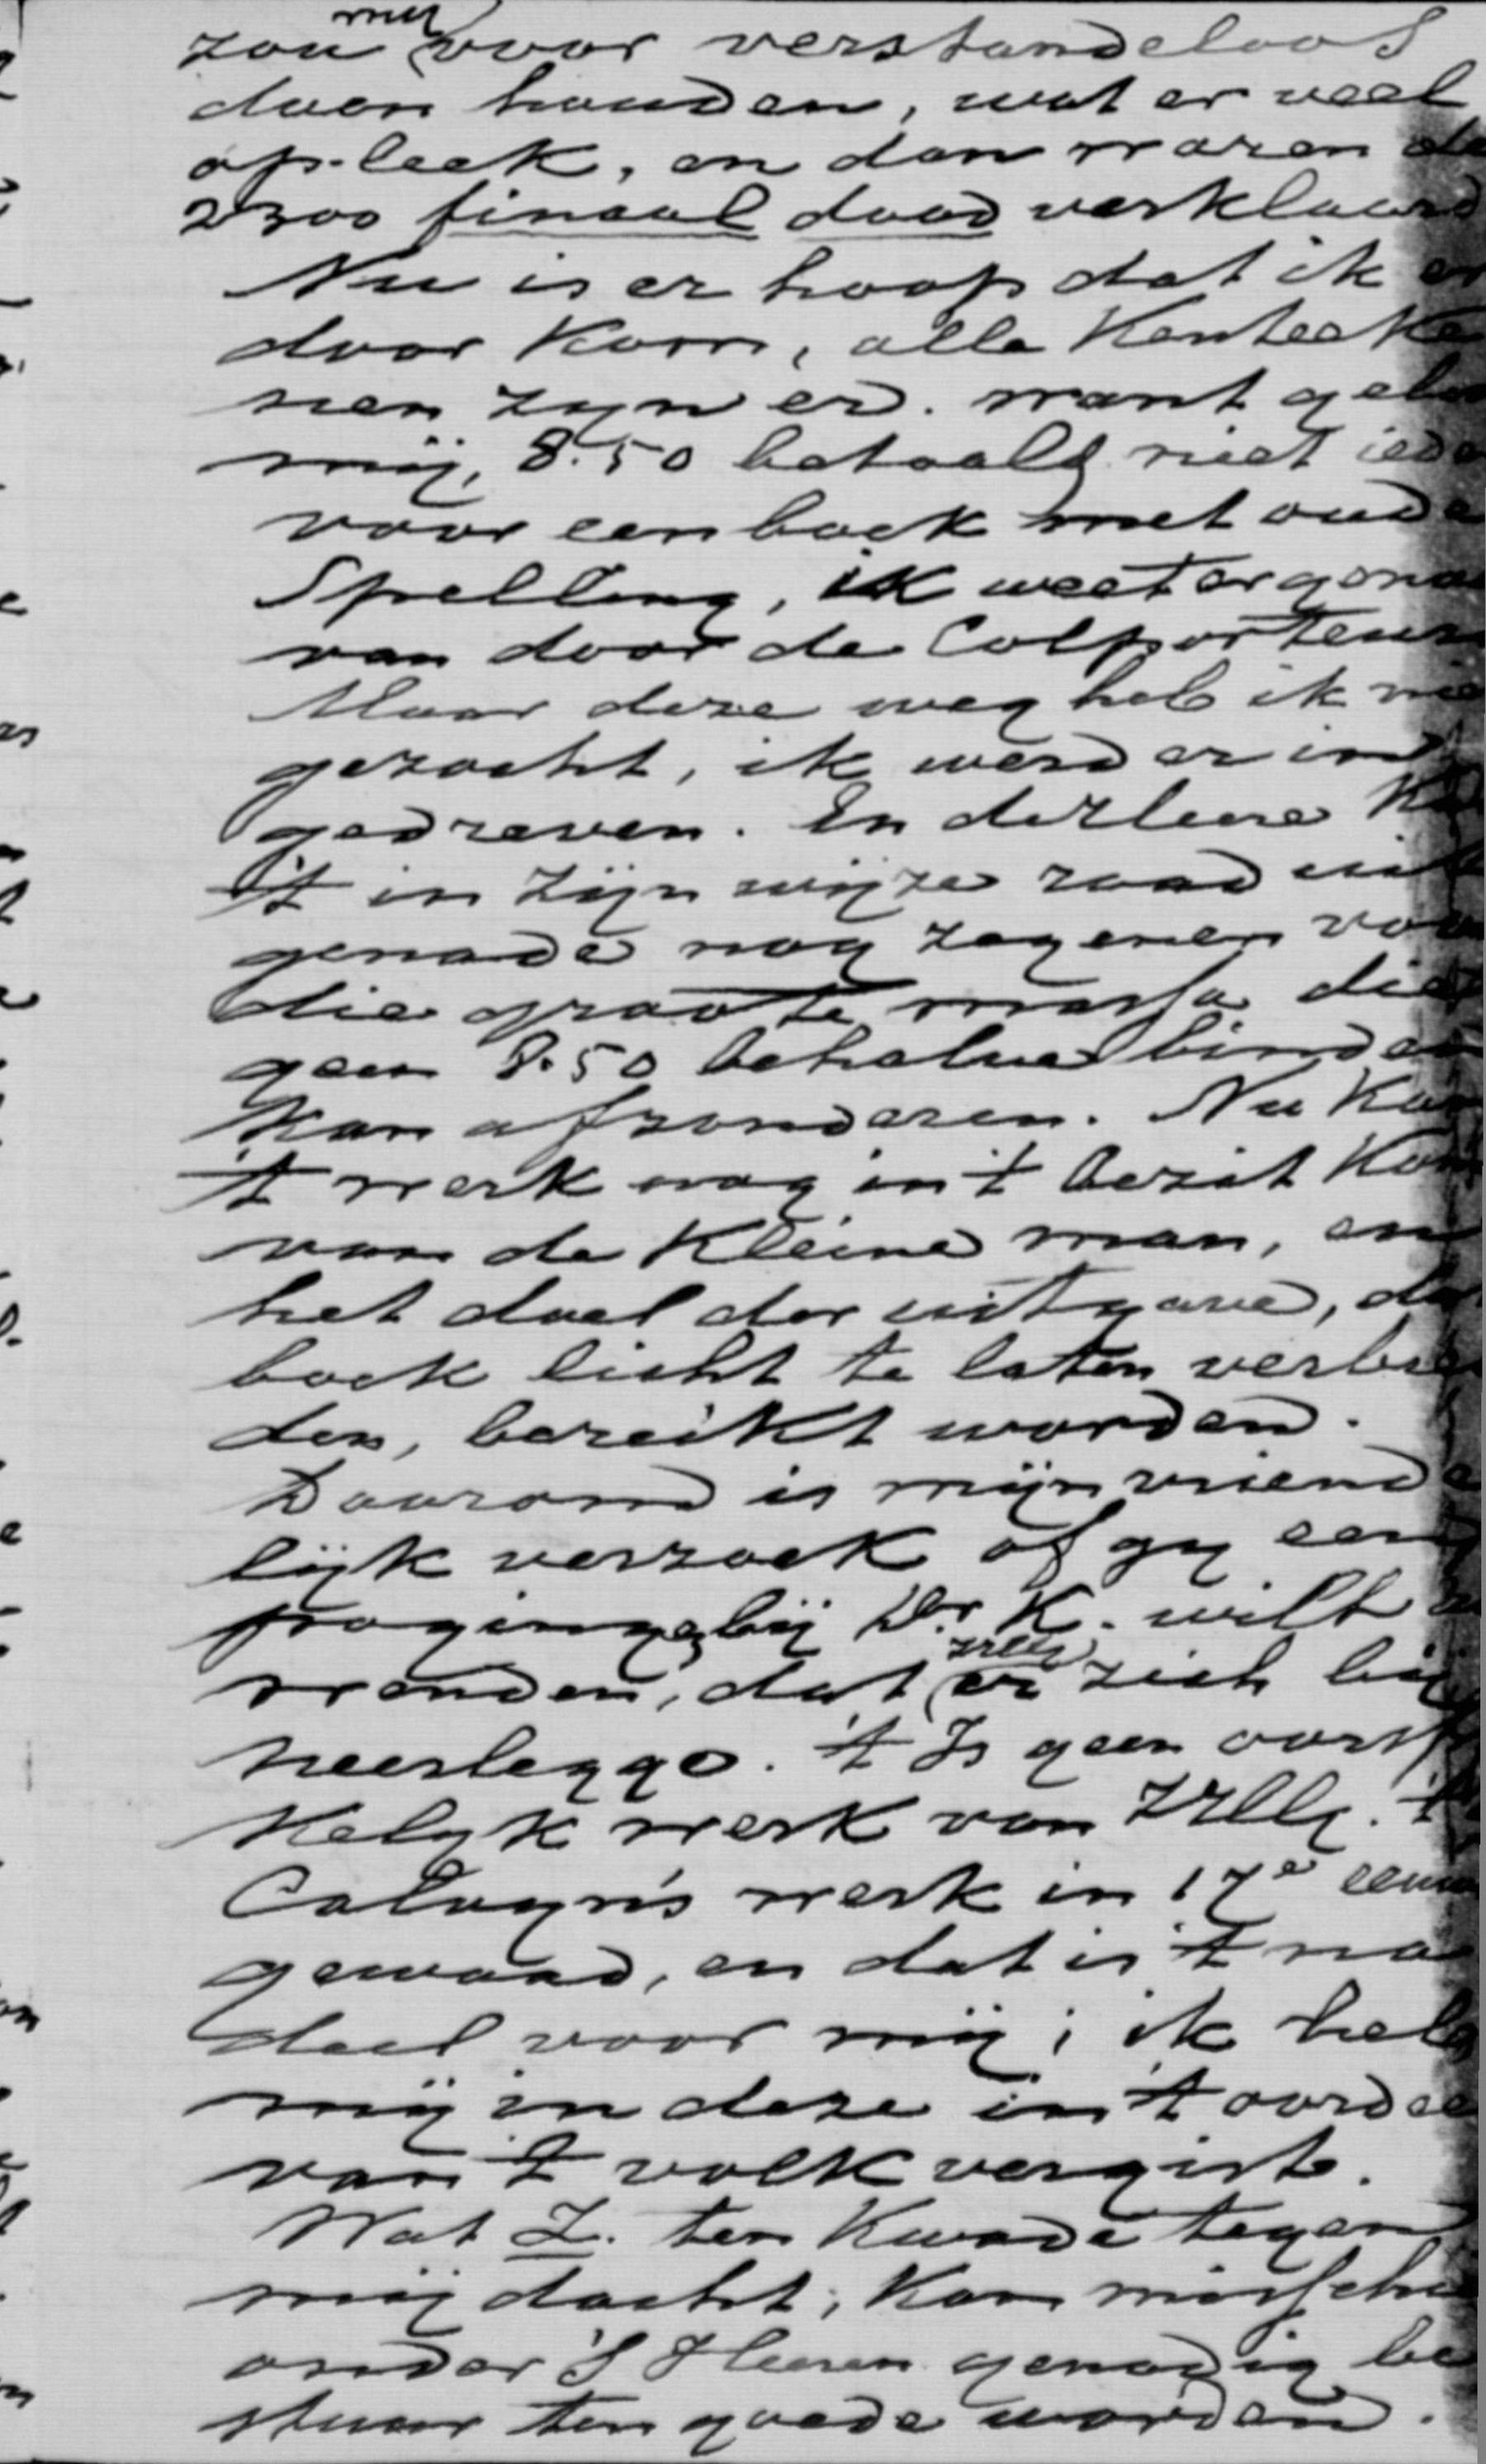 zou mij voor verstandeloos
doen houden, wat er veel
op leek, en dan waren de
2300 finaal dood verklaard
Nu is er hoop dat ik er
door kom, alle kenteeke
nen zyn er. want gelo
mij, 8.50 betaald niet iede
voor een boek met oude
Spelling, ik weet er genoe
van door de Colporteurs
Maar deze weg heb ik nie
gezocht, ik werd er in
gedreven. En de Heere ka
't in zijn wijze raad uit
genade nog zegenen voor
die groote massa die
geen 8.50 behalve binden
kan afzonderen. Nu kan
't werk nog in 't bezit kom
van de kleine man, en
het doel der uitgave, de
boek licht te laten verbre
den, bereikt worden.
Daarom is mijn vriende
lijk verzoek of gy een
poging bij Dr. K. wilt a
wenden, dat ZEG er zich bij
neerlegge. 't Is geen oorsp
kelyk werk van ZEG. 't
Calvyn's werk in 17e eeuw
gewaad, en dat is 't na
deel voor mij; ik heb
mij in deze in 't oordee
van 't volk vergist.
Wat Z. ten kwade tegen
mij dacht, kan misschie
onder 's Heeren genadig be
stuur ten goede worden.